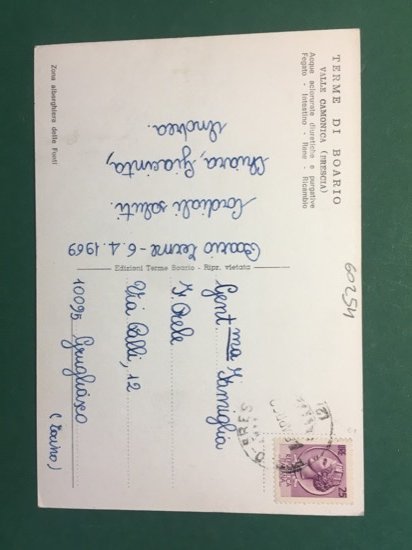 TERME DI BOARIO
VALLE CAMONICA (BRESCIA)
Acque acidurate diuretiche e purgative
Fegato - Intestino - Rene - Ricambio
Boario Terme - 6.4.1969
Cordiali saluti.
Chiara, Giacinta,
Andrea.
Zona alberghiera delle Fonti
Edizioni Terme Boario - Ripr. vietata
60254
25
Gent.ma Famiglia
Via 12
10095 Grugliasco
(Torino)